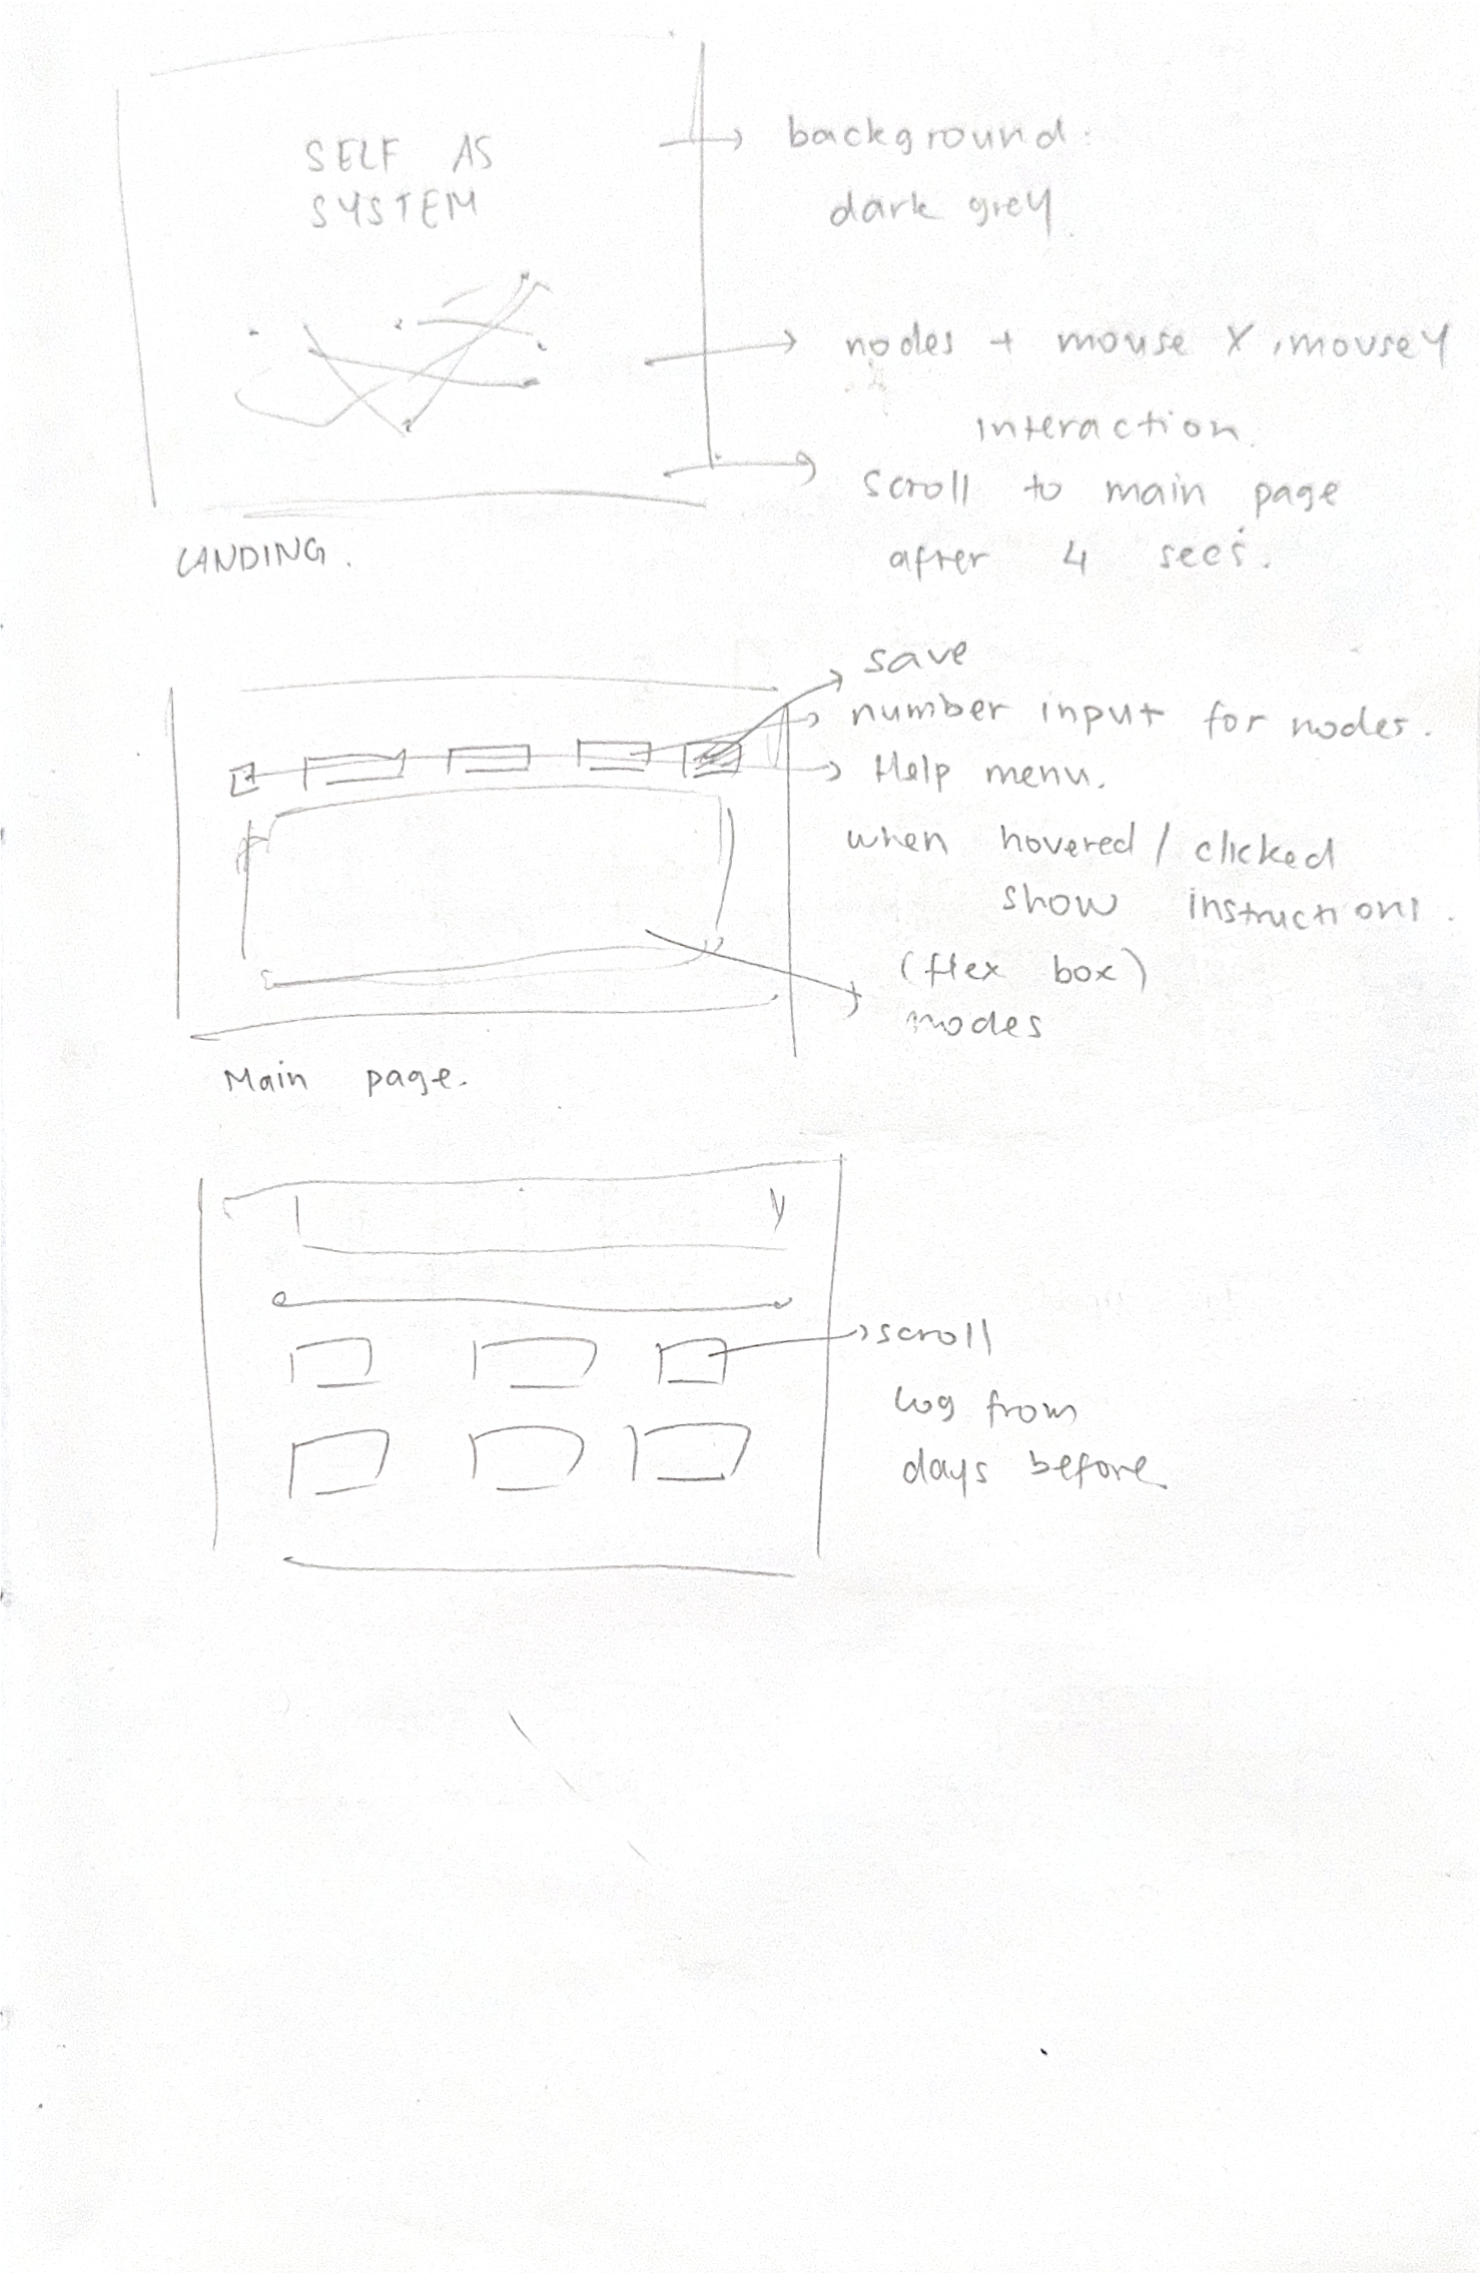 SELF AS
SYSTEM
background:
dark grey.
nodes + mouse X, mouseY
interaction.
scroll to main page
after 4 secs.
LANDING.
save
number input for nodes.
Help menu.
when hovered / clicked
show instructions.
(flex box)
nodes
Main page.
scroll
log from
days before